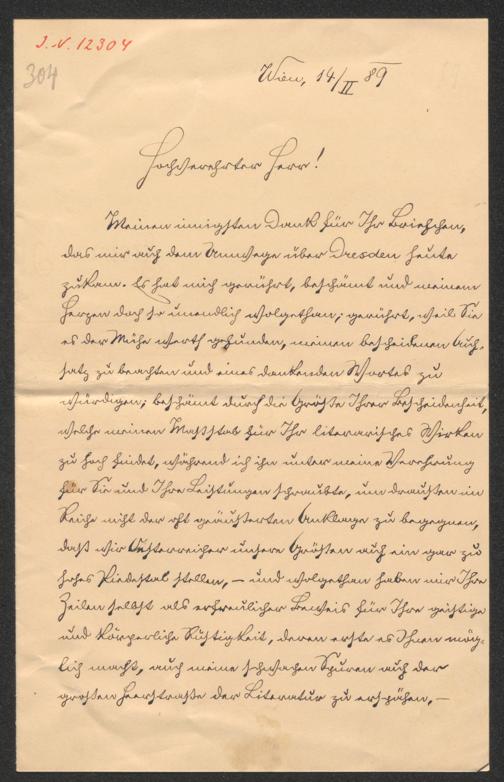 J. N. 12304
304
Wien, 14/II 89
Hochverehrter Herr!
Meinen innigsten Dank für Ihr Briefchen,
das mir auf dem Umwege über Dresden heute
zukam. Es hat mich gerührt, beschämt und meinem
Herzen doch so unendlich wolgethan; gerührt, weil Sie
es der Mühe werth gefunden, meinen bescheidenen Auf-
satz zu beachten und eines dankenden Wortes zu
würdigen; beschämt durch die Größe Ihrer Bescheidenheit,
welche meinen Maßstab für Ihr literarisches Wirken
zu hoch findet, während ich ihn unter meine Verehrung
für Sie und Ihre Leistungen schraubte, um draußen im
Reiche nicht der oft geäußerten Anklage zu begegnen,
daß wir Oesterreicher unsere Größen auf ein gar zu
hohes Piedestal stellen, – und wolgethan haben mir Ihre
Zeilen selbst als erfreulicher Beweis für Ihre geistige
und körperliche Rüstigkeit, deren erste es Ihnen mög-
lich macht, auch meine schwachen Spuren auf der
großen Heerstraße der Literatur zu erspähen, –